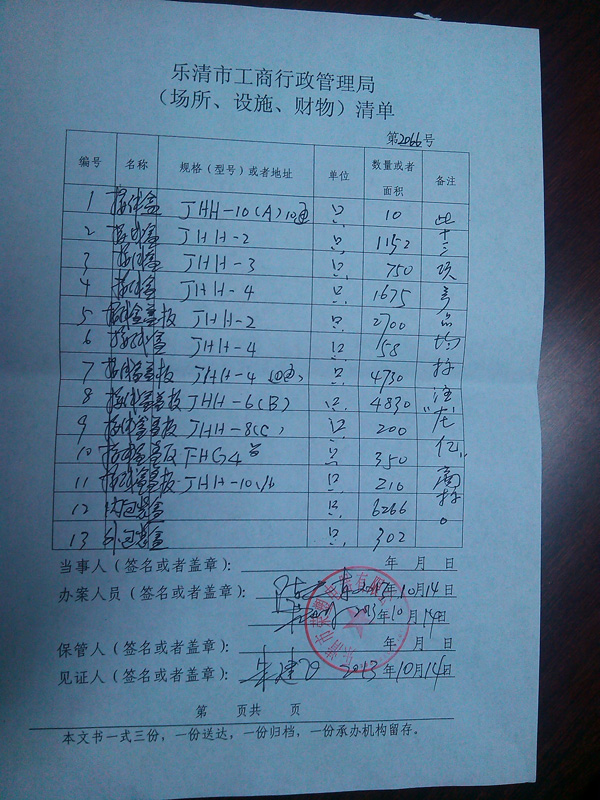 乐清市工商行政管理局
（场所、设施、财物）清单
第2066号
编号 名称 规格（型号）或者地址 单位 数量或者面积 备注
1 接线盒 JHH-10(A)10通 只 10
2 接线盒 JHH-2 只 1152
3 接线盒 JHH-3 只 750
4 接线盒 JHH-4 只 1675
5 接线盒盖板 JHH-2 只 2700
6 接线盒 JHH-4 只 158
7 接线盒盖板 JHH-4 只 4730
8 接线盒盖板 JHH-6(B) 只 4830
9 接线盒盖板 JHH-8(C) 只 200
10 接线盒盖板 FHG4 只 350
11 接线盒盖板 JHH-10 只 210
12 内包装盒 只 6266
13 外包装盒 只 302
此十三项产品均标注“龙亿”商标。
当事人（签名或者盖章）： 年 月 日
办案人员（签名或者盖章）： 2013年10月14日
2013年10月14日
保管人（签名或者盖章）： 年 月 日
见证人（签名或者盖章）： 朱建 2013年10月14日
第 页共 页
本文书一式三份，一份送达，一份归档，一份承办机构留存。